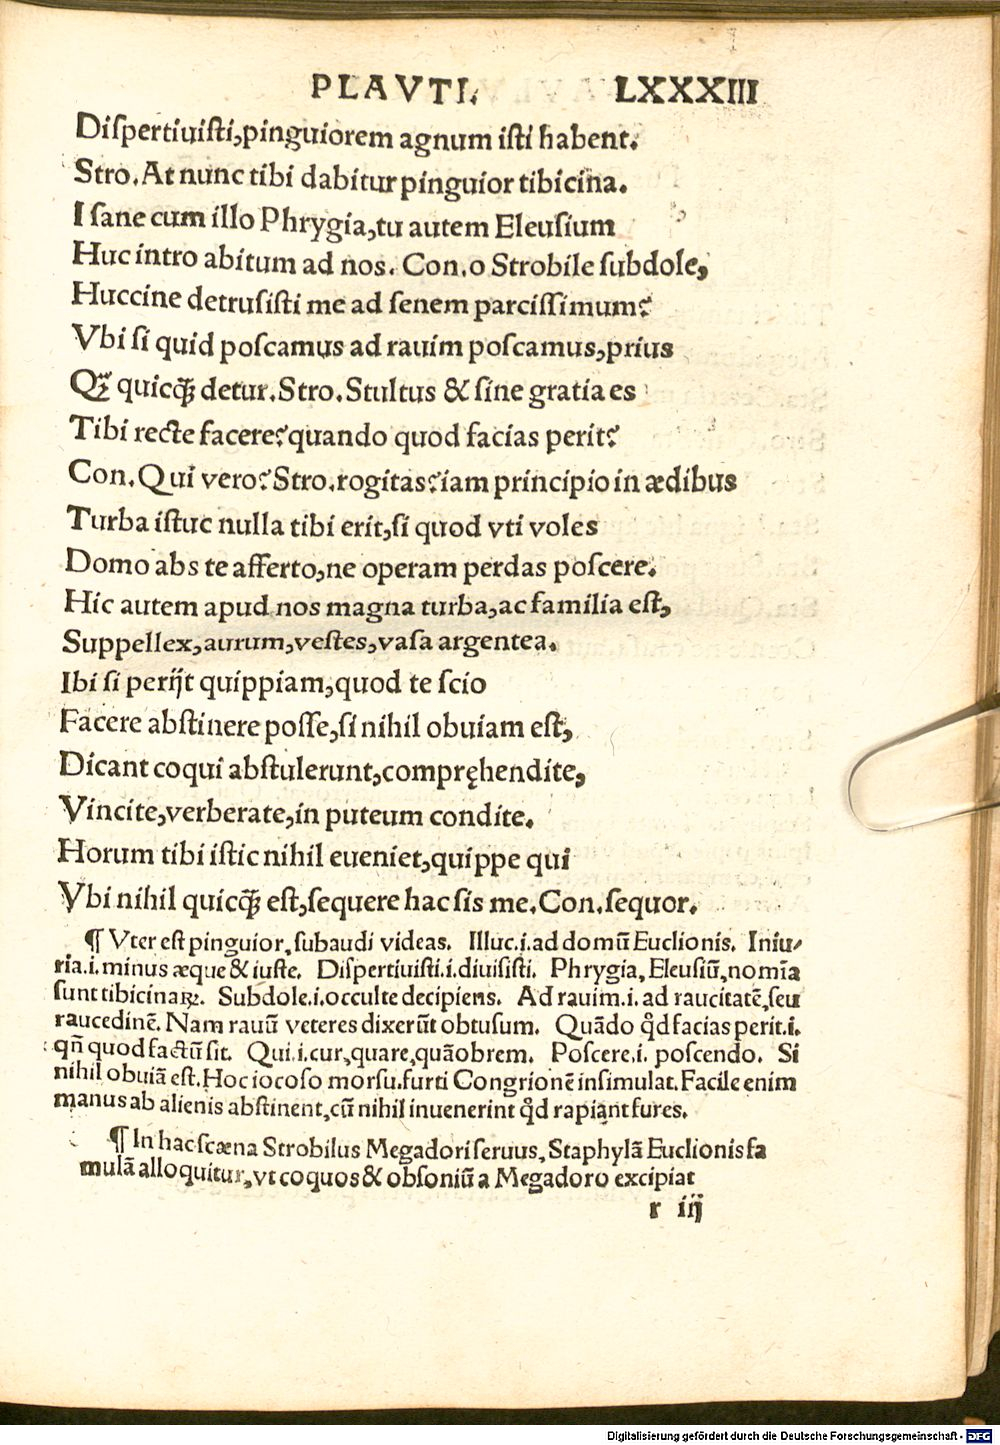 PLAVTI. LXXXIII
Diſpertiuiſti,pinguiorem agnum iſti habent.
Stro.At nunc tibi dabitur pinguior tibicina.
I ſane cum illo Phrygia,tu autem Eleuſium
Huc intro abitum ad nos. Con.o Strobile ſubdole,
Huccine detruſiſti me ad ſenem parciſſimum?
Vbi ſi quid poſcamus ad rauim poſcamus,prius
Qꝫ̃ quicq̃ꝫ detur.Stro.Stultus & ſine gratia es
Tibi recte facere?quando quod facias perit?
Con.Qui vero?Stro.rogitas?iam principio in ædibus
Turba iſtuc nulla tibi erit,ſi quod vti voles
Domo abs te afferto,ne operam perdas poſcere.
Hic autem apud nos magna turba,ac familia eſt,
Suppellex,aurum,veſtes,vaſa argentea.
Ibi ſi perijt quippiam,quod te ſcio
Facere abſtinere poſſe,ſi nihil obuiam eſt,
Dicant coqui abſtulerunt,compręhendite,
Vincite,verberate,in puteum condite.
Horum tibi iſtic nihil eueniet,quippe qui
Vbi nihil quicq̃ꝫ eſt,ſequere hac ſis me.Con.ſequor.
¶ Vter eſt pinguior,ſubaudi videas. Illuc.i.ad domũ Euclionis. Iniu-
ria.i.minus æque & iuſte. Diſpertiuiſti.i.diuiſiſti. Phrygia,Eleuſiũ,nomĩa
ſunt tibicinaꝝ. Subdole.i.occulte decipiens. Ad rauim.i.ad raucitatẽ,ſeu
raucedinẽ.Nam rauũ veteres dixerũt obtuſum. Quãdo q̃d facias perit.i.
qñ quod factũ ſit. Qui.i.cur,quare,quãobrem. Poſcere.i. poſcendo. Si
nihil obuiã eſt.Hoc iocoſo morſu.furti Congrionẽ inſimulat.Facile enim
manus ab alienis abſtinent,cũ nihil inuenerint q̃d rapiant fures.
¶ In hac ſcæna Strobilus Megadori ſeruus,Staphylã Euclionis fa
mulã alloquitur,vt coquos & obſoniũ a Megadoro excipiat
r iij
Digitalisierung gefördert durch die Deutsche Forschungsgemeinschaft - DFG